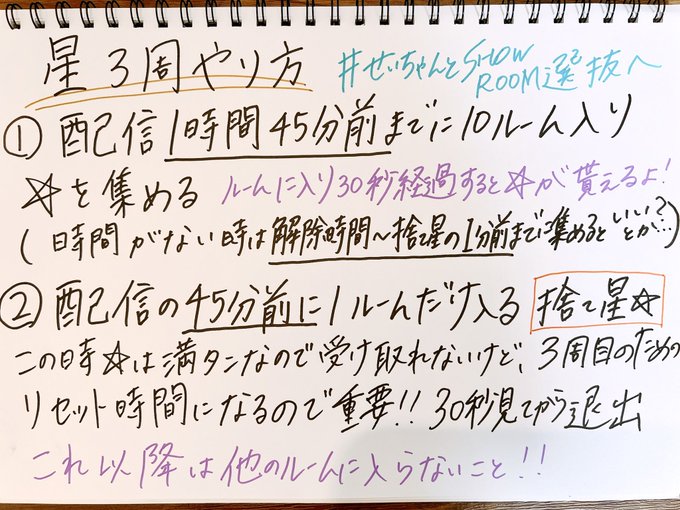 星3周やり方
#せいちゃんとSHOW
ROOM選抜へ
① 配信1時間45分前までに10ルーム入り
☆を集める ルームに入り30秒経過すると☆が貰えるよ!
(時間がない時は解除時間〜捨て星の1分前まで集めるといいとか…?)
② 配信の45分前に1ルームだけ入る 捨て星☆
この時☆は満タンなので受け取れないけど、3周目のための
リセット時間になるので重要!! 30秒見てから退出
これ以降は他のルームに入らないこと!!